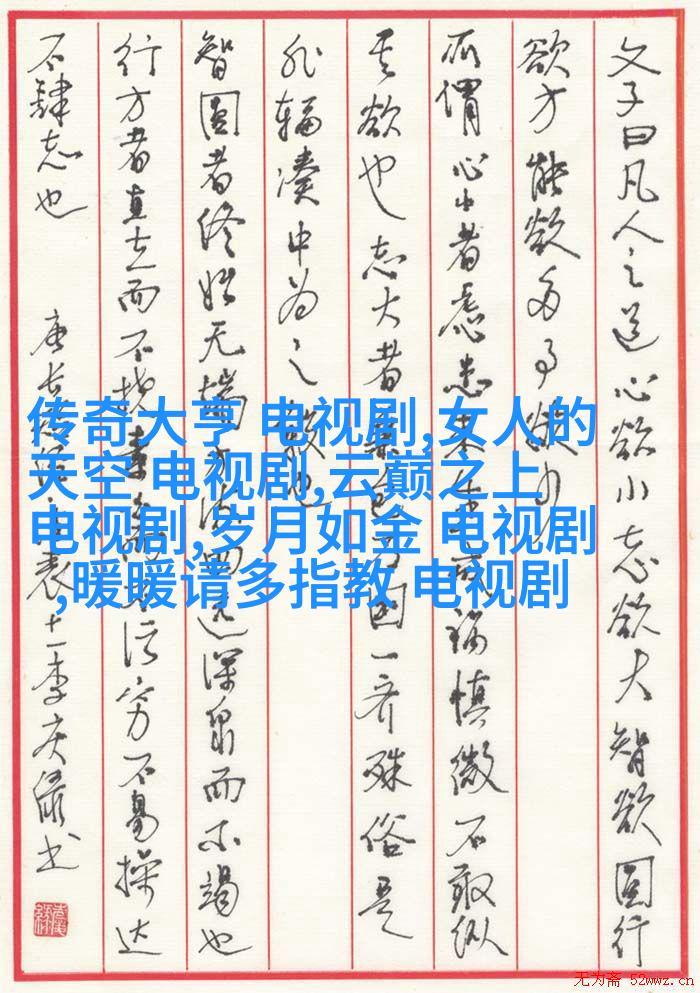 文子曰凡人之道心欲小志欲大智欲圆行
欲方能欲多事欲少
所谓心小者虑患未生戒祸慎微不敢纵
其欲也志大者兼包万国一齐殊俗是
非辐凑中为之毂也
智圆者终始无端方流四远深泉而不竭也
行方者直立而不挠素白不污穷不易操达
不肆志也
传奇大亨 电视剧,女人的
天空 电视剧,云巅之上
电视剧,岁月如金 电视剧
,暖暖请多指教 电视剧
无为斋 52wwz.cn